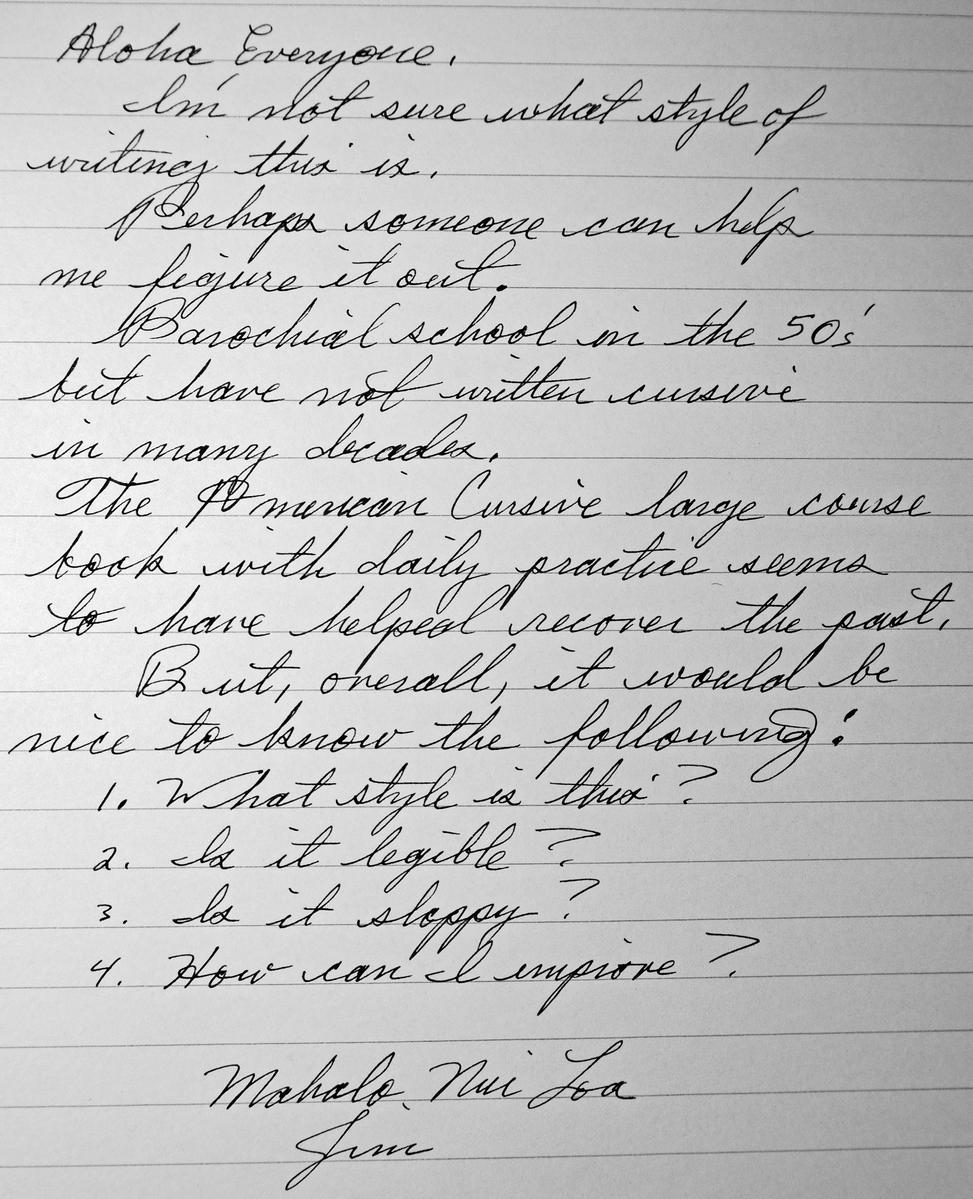 Aloha Everyone.
I'm not sure what style of
writing this is.
Perhaps someone can help
me figure it out.
Parochial school in the 50's
but have not written cursive
in many decades.
The American Cursive large course
book with daily practice seems
to have helped recover the past.
But, overall, it would be
nice to know the following:
1. What style is this?
2. Is it legible?
3. Is it sloppy?
4. How can I improve?
Mahalo Nui Loa
Jim